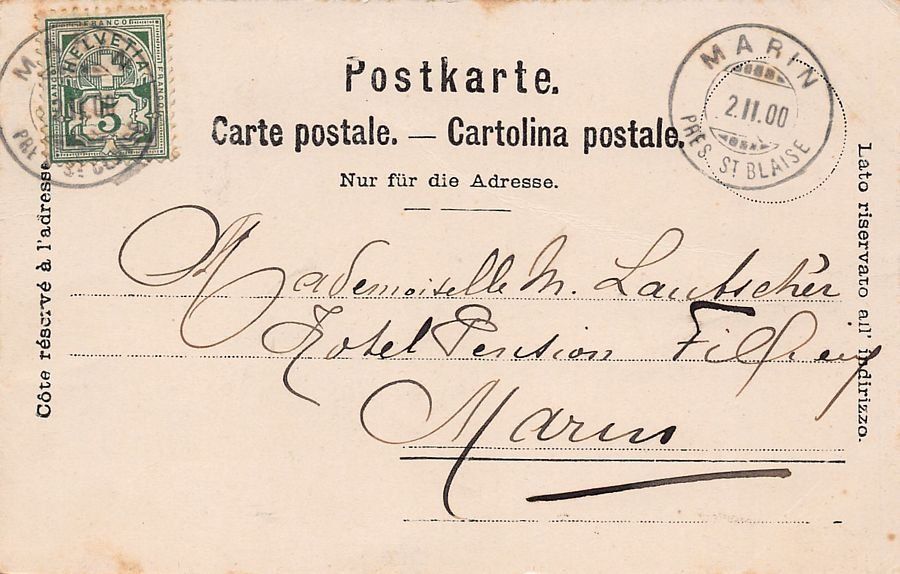 FRANCO
HELVETIA
5
MARIN
2.II.00
PRÈS. ST BLAISE
Postkarte.
Carte postale. — Cartolina postale.
Nur für die Adresse.
Côte réservé à l'adresse
Lato riservato all' indirizzo.
Mademoiselle M. Lautschér
Hotel Pension
Marin